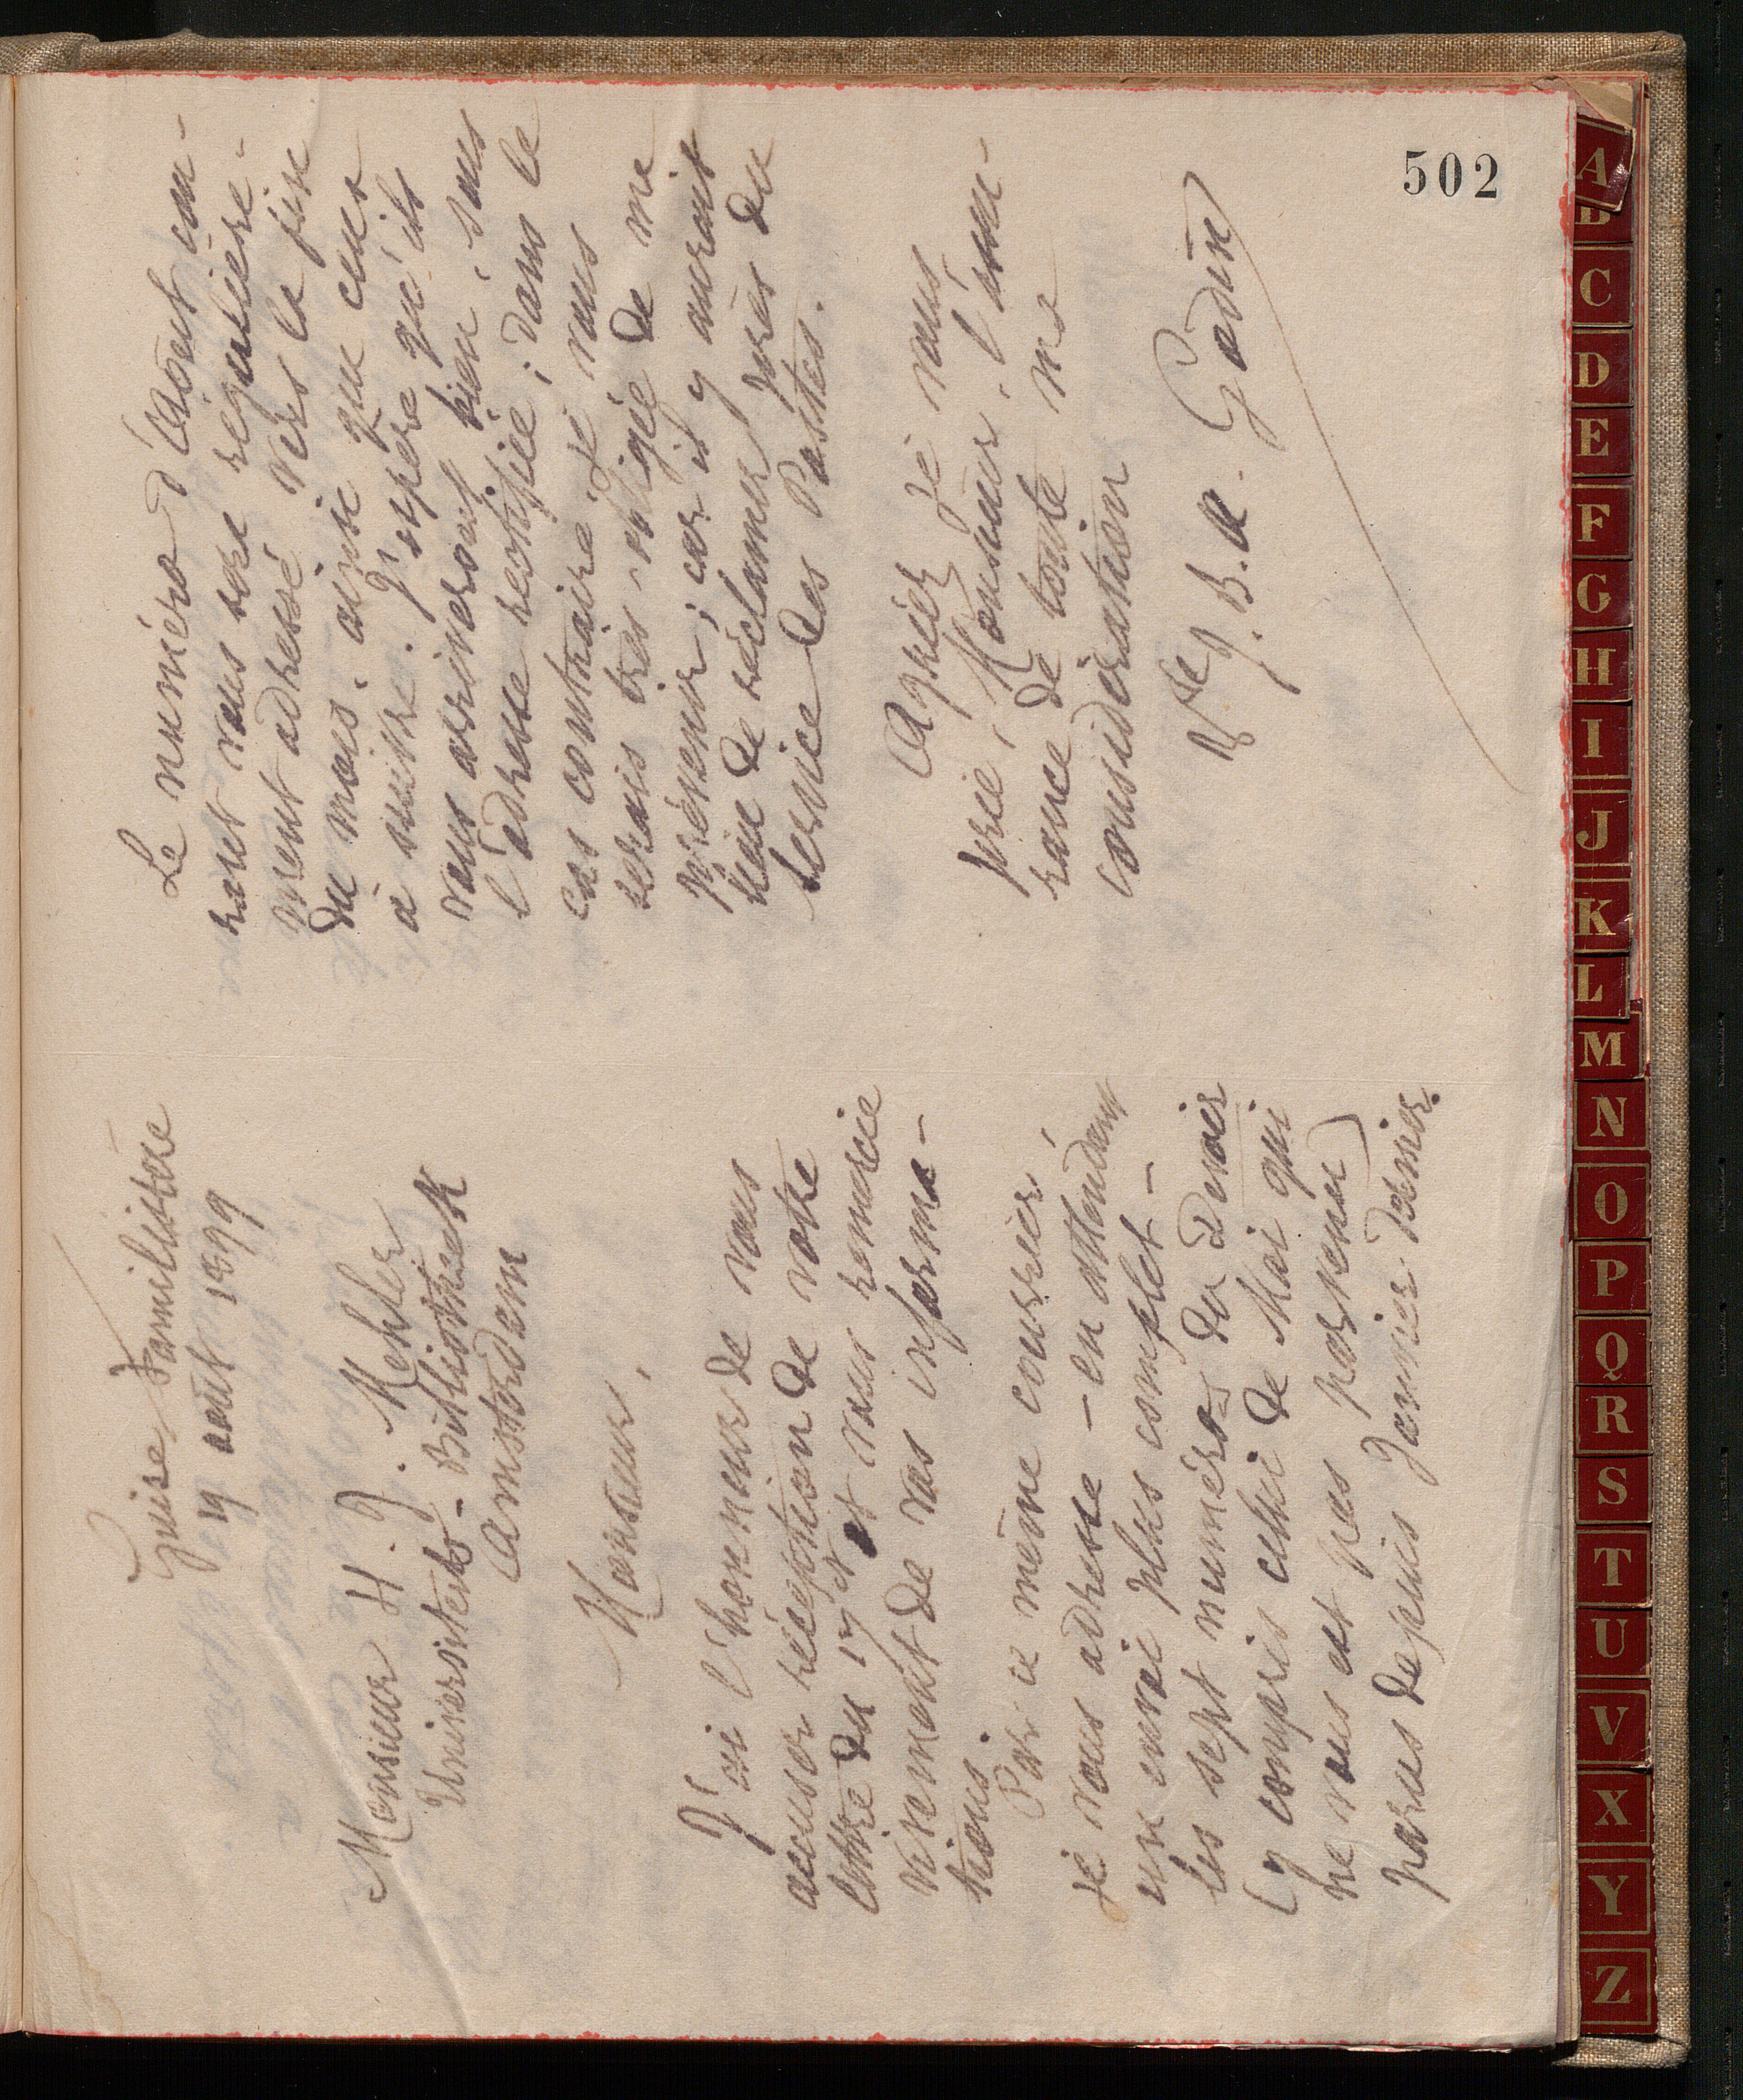 502
Guise, Familistère
19 août 1899
Monsieur H. J. Mehler
Universiteits-Bibliotheek
Amsterdam
Monsieur,
J'ai l'honneur de vous
accuser réception de votre
lettre du 17 ct et vous remercie
vivement de vos informa-
tions.
Par ce même courrier,
je vous adresse – en attendant
un envoi plus complet –
les sept numéros du Devoir
(y compris celui de Mai qui
ne vous est pas parvenu)
parus depuis Janvier dernier.
Le numéro d'Août cou-
rant vous sera régulière-
ment adressé vers la fin
du mois, ainsi que ceux
à suivre. J'espère qu'ils
vous arriveront bien, sous
l'adresse rectifiée ; dans le
cas contraire je vous
serais très-obligée de me
prévenir ; car il y aurait
lieu de réclamer près du
service des Postes.
Agréez je vous
prie, Monsieur, l'assu-
rance de toute ma
considération
Vve J. B. A. Godin
A
B
C
D
E
F
G
H
I
J
K
L
M
N
O
P
Q
R
S
T
U
V
X
Y
Z